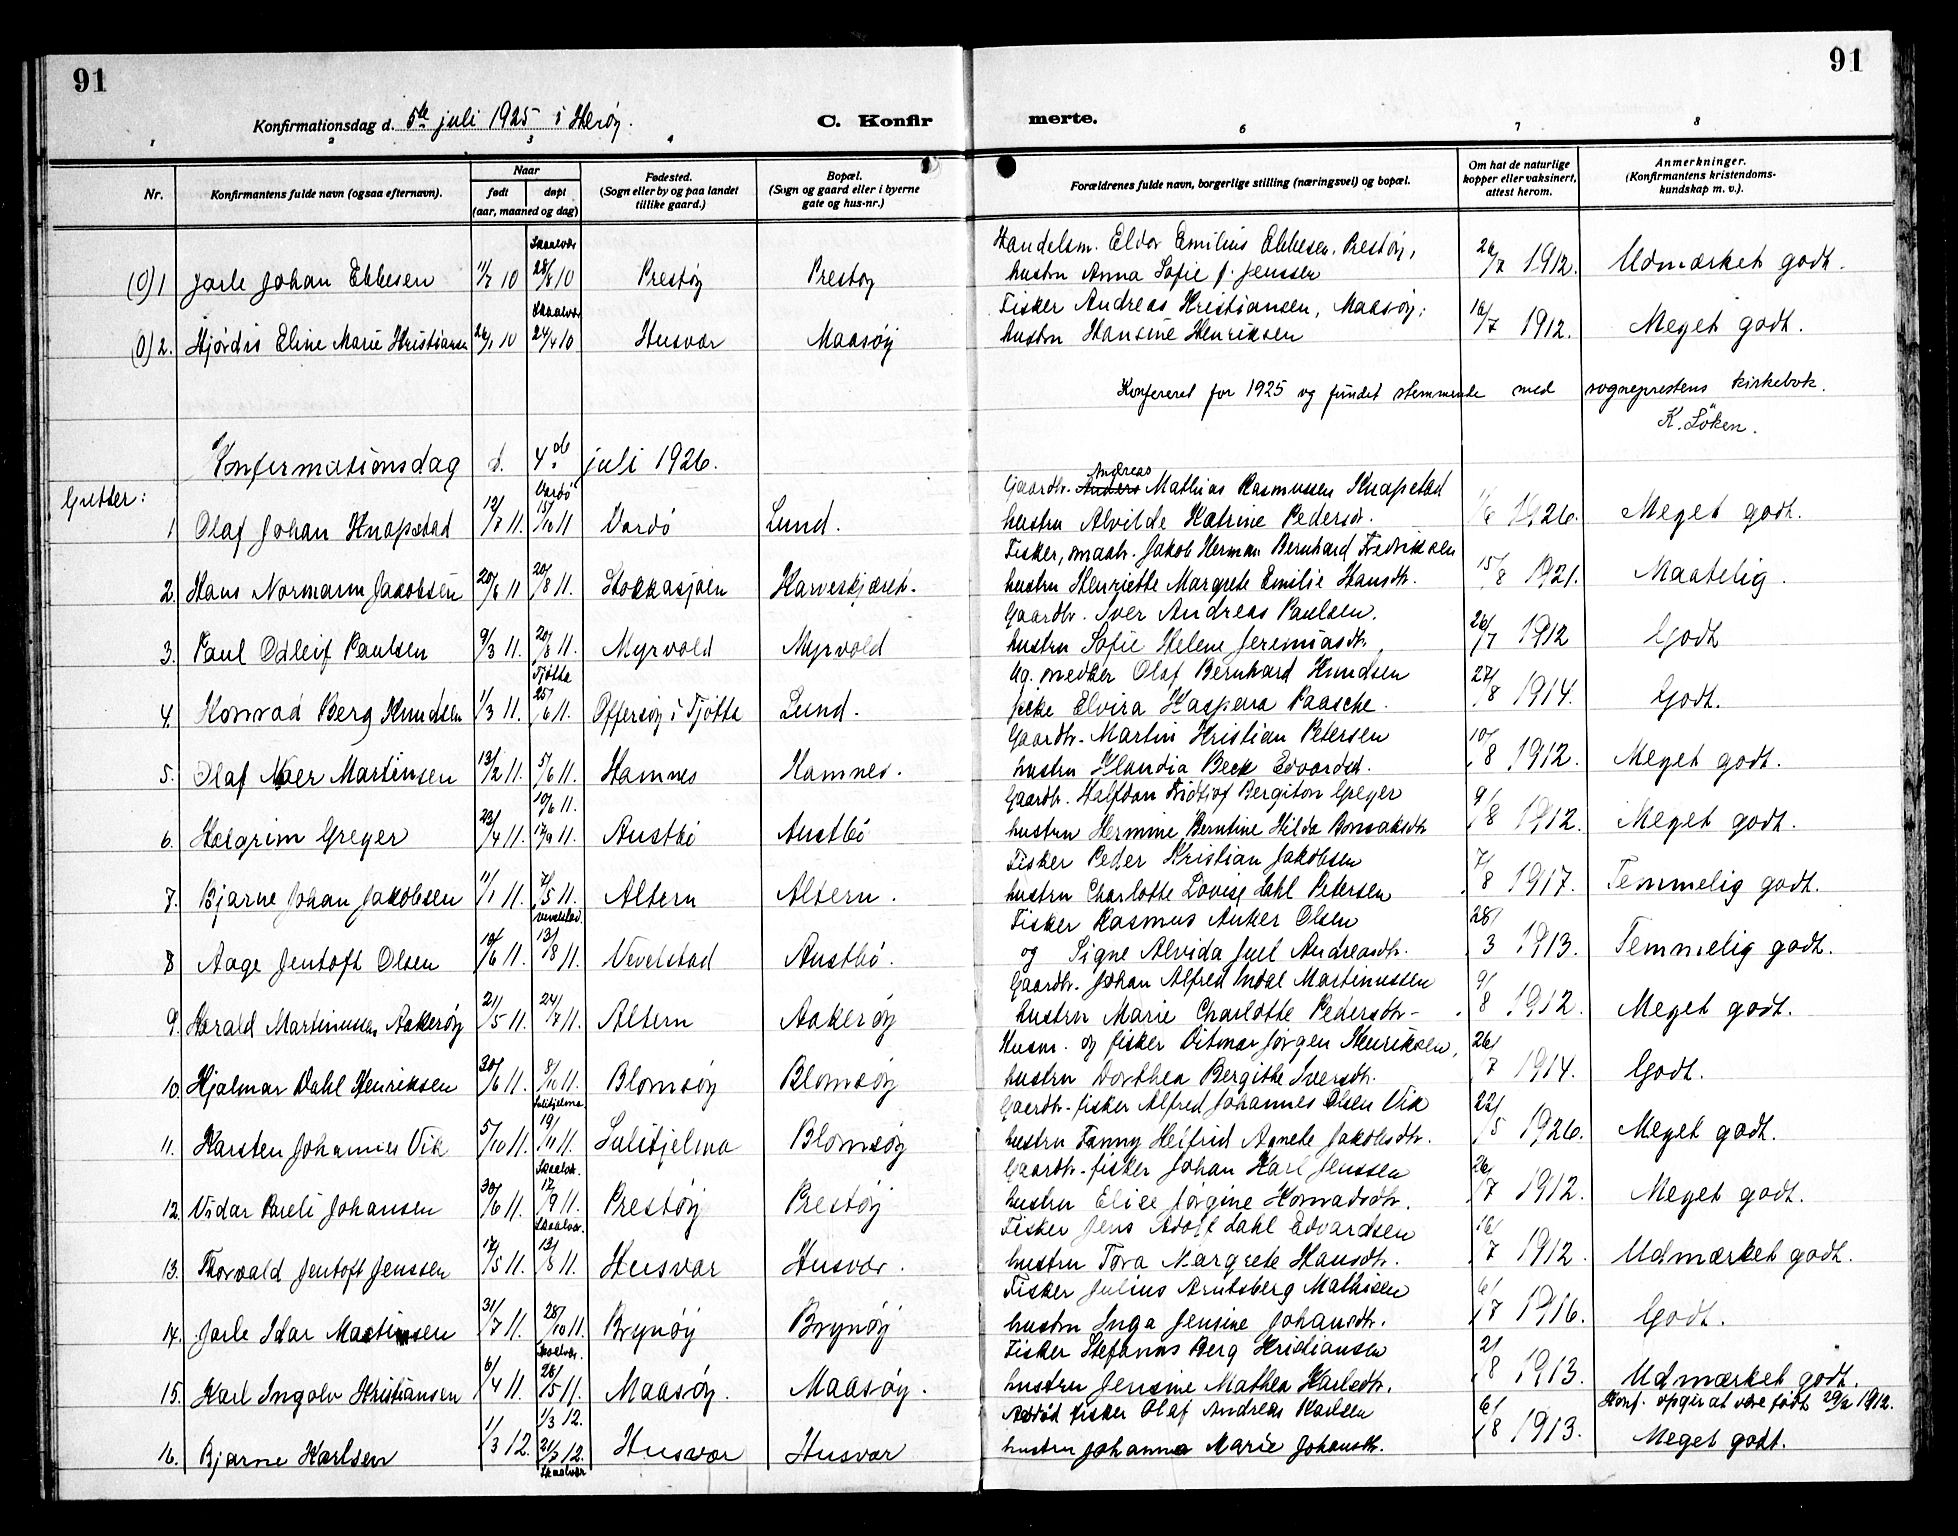 91
91
Konfirmationsdag d. 5te juli 1925 i Herøy.
C. Konfir
merte.
1 2 3 4 6 7 8
Nr.
Konfirmantens fulde navn (ogsaa efternavn).
Naar
født
døpt
(aar, maaned og dag)
Fødested.
(Sogn eller by og paa landet
tillike gaard.)
Bopæl.
(Sogn og gaard eller i byerne
gate og hus-nr.)
Forældrenes fulde navn, borgerlige stilling (næringsvei) og bopæl.
Om hat de naturlige
kopper eller vaksinert,
attest herom.
Anmerkninger.
(Konfirmantens kristendoms-
kundskap m. v.).
Skaalvær
Handelsm. Eldor Emilius Ebbesen, Prestøy,
(0) 1 Jarle Johan Ebbesen 11/7 10 28/8 10 Prestøy Prestøy hustru Anna Sofie f. Jenssen 26/7 1912. Udmærket godt.
Skaalvær
Fisker Andreas Kristiansen, Maasøy;
(0) 2. Hjørdis Eline Marie Kristiansen 26/1 10 24/4 10 Husvær Maasøy hustru Hansine Henriksen 16/7 1912. Meget godt.
Konfereret for 1925 og fundet stemmende med sogneprestens kirkebok.
K. Löken.
Konfirmationsdag d. 4de juli 1926.
Gutter:
Vardø
Gaardbr. Andreas Mathias Rasmussen Knapstad
1 Olaf Johan Knapstad 12/7 11. 15/10 11 Vardö Lund. hustru Alvilde Katrine Pedersdr. 1926. Meget godt.
Fisker, Jakob Herman Bernhard Fredriksen
2. Hans Normann Jacobsen 20/6 11 20/8 11. Stokkasjøen Karveskjæret. hustru Henriette Margrete Emilie Hansdtr. 15/8 1921. Maatelig.
Gaardbr. Iver Andreas Paulsen.
3. Paul Odleif Paulsen 9/3 11. 20/8 11. Myrvold Myrvold hustru Sofie Helene Jeremiasdtr. 26/7 1912 Godt
Tjøtta
Ug. Olaf Bernhard Knudsen
4. Konrad Berg Knudsen 1/3 11. 25/6 11. Offersøy i Tjøtta Lund. pike Elvira Kaspera Paasche. 27/8 1914. Godt.
Gaardbr. Martin Kristian Petersen
5. Olaf Moer Martinsen 13/2 11. 5/6 11. Hamnes Hamnes. hustru Klaudia Beck Edvardsd. 10/8 1912. Meget godt.
10/6 11.
Gaardbr. Halfdan Fridtjof Bergiton Greger
6. Halgrim Greger 23/4 11. 17/9 11. Austbö Austbö hustru Hermine Berntine Hilda Bonsaksdtr 9/8 1912. Meget godt.
Fisker Peder Kristian Jakobsen
7. Bjarne Johan Jakobsen 11/1 11. 7/5 11. Altern Altern. hustru Charlotte Lovise Dahl Petersen 7/8 1917. Temmelig godt.
Vevelstad.
Fisker Rasmus Anker Olsen
8 Aage Jentoft Olsen 19/6 11. 13/8 11. Vevelstad Austbö. og Signe Alvida Juel Andreasdtr. 28/3 1913. Temmelig godt.
Gaardbr. Johan Alfred Indal Martinussen
9. Harald Martinussen Aakerøy 21/5 11. 24/7 11. Altern Aakerøy hustru Marie Charlotte Pedersdtr. 9/8 1912. Meget godt.
Husm. og fisker Ditmar Jörgen Henriksen,
10. Hjalmar Dahl Henriksen 30/6 11. 8/10 11. Blomsøy Blomsøy hustru Dorthea Bergithe Iversdtr. 26/7 1914. Godt.
Sulitjelma
Gaardbr.-fisker Alfred Johannes Olsen Vik
11. Karsten Johannes Vik 5/10 11. 19/11 11. Sulitjelma Blomsøy hustru Fanny Heifrid Agnete Jakobsdtr. 22/5 1926. Meget godt.
Skaalvær.
Gaardbr.-fisker Johan Karl Jenssen
12. Vidar Pareli Johansen 30/6 11. 17/9 11. Prestøy Prestøy hustru Elise Jörgine Konradsdtr. 26/7 1912. Meget godt.
Skaalvær.
Fisker Jens Adolf Dahl Edvardsen
13. Thorvald Jentoft Jenssen 17/5 11. 13/8 11. Husvær Husvær. hustru Tora Margrete Hansdtr. 16/7 1912. Udmærket godt.
Fisker Julius Arntsberg Mathisen
14. Jarle Idar Martinsen 31/7 11. 28/10 11. Brynøy Brynøy hustru Inga Jensine Johansdtr. 6/7 1916. Godt.
Skaalvær.
Fisker Stefanus Berg Kristiansen
15. Karl Ingolv Kristiansen 6/4 11. 28/5 11. Maasøy. Maasøy. hustru Jensine Mathea Karlsdtr. 2/8 1913. Udmærket godt.
1/3 12.
Afdød fisker Olaf Andreas Karlsen
Konf. opgir at være født 29/2 1912.
16. Bjarne Karlsen 1/3 12. 21/7 12. Husvær Husvær hustru Johanna Marie Johansdtr. 6/8 1913. Meget godt.
Skaalvær